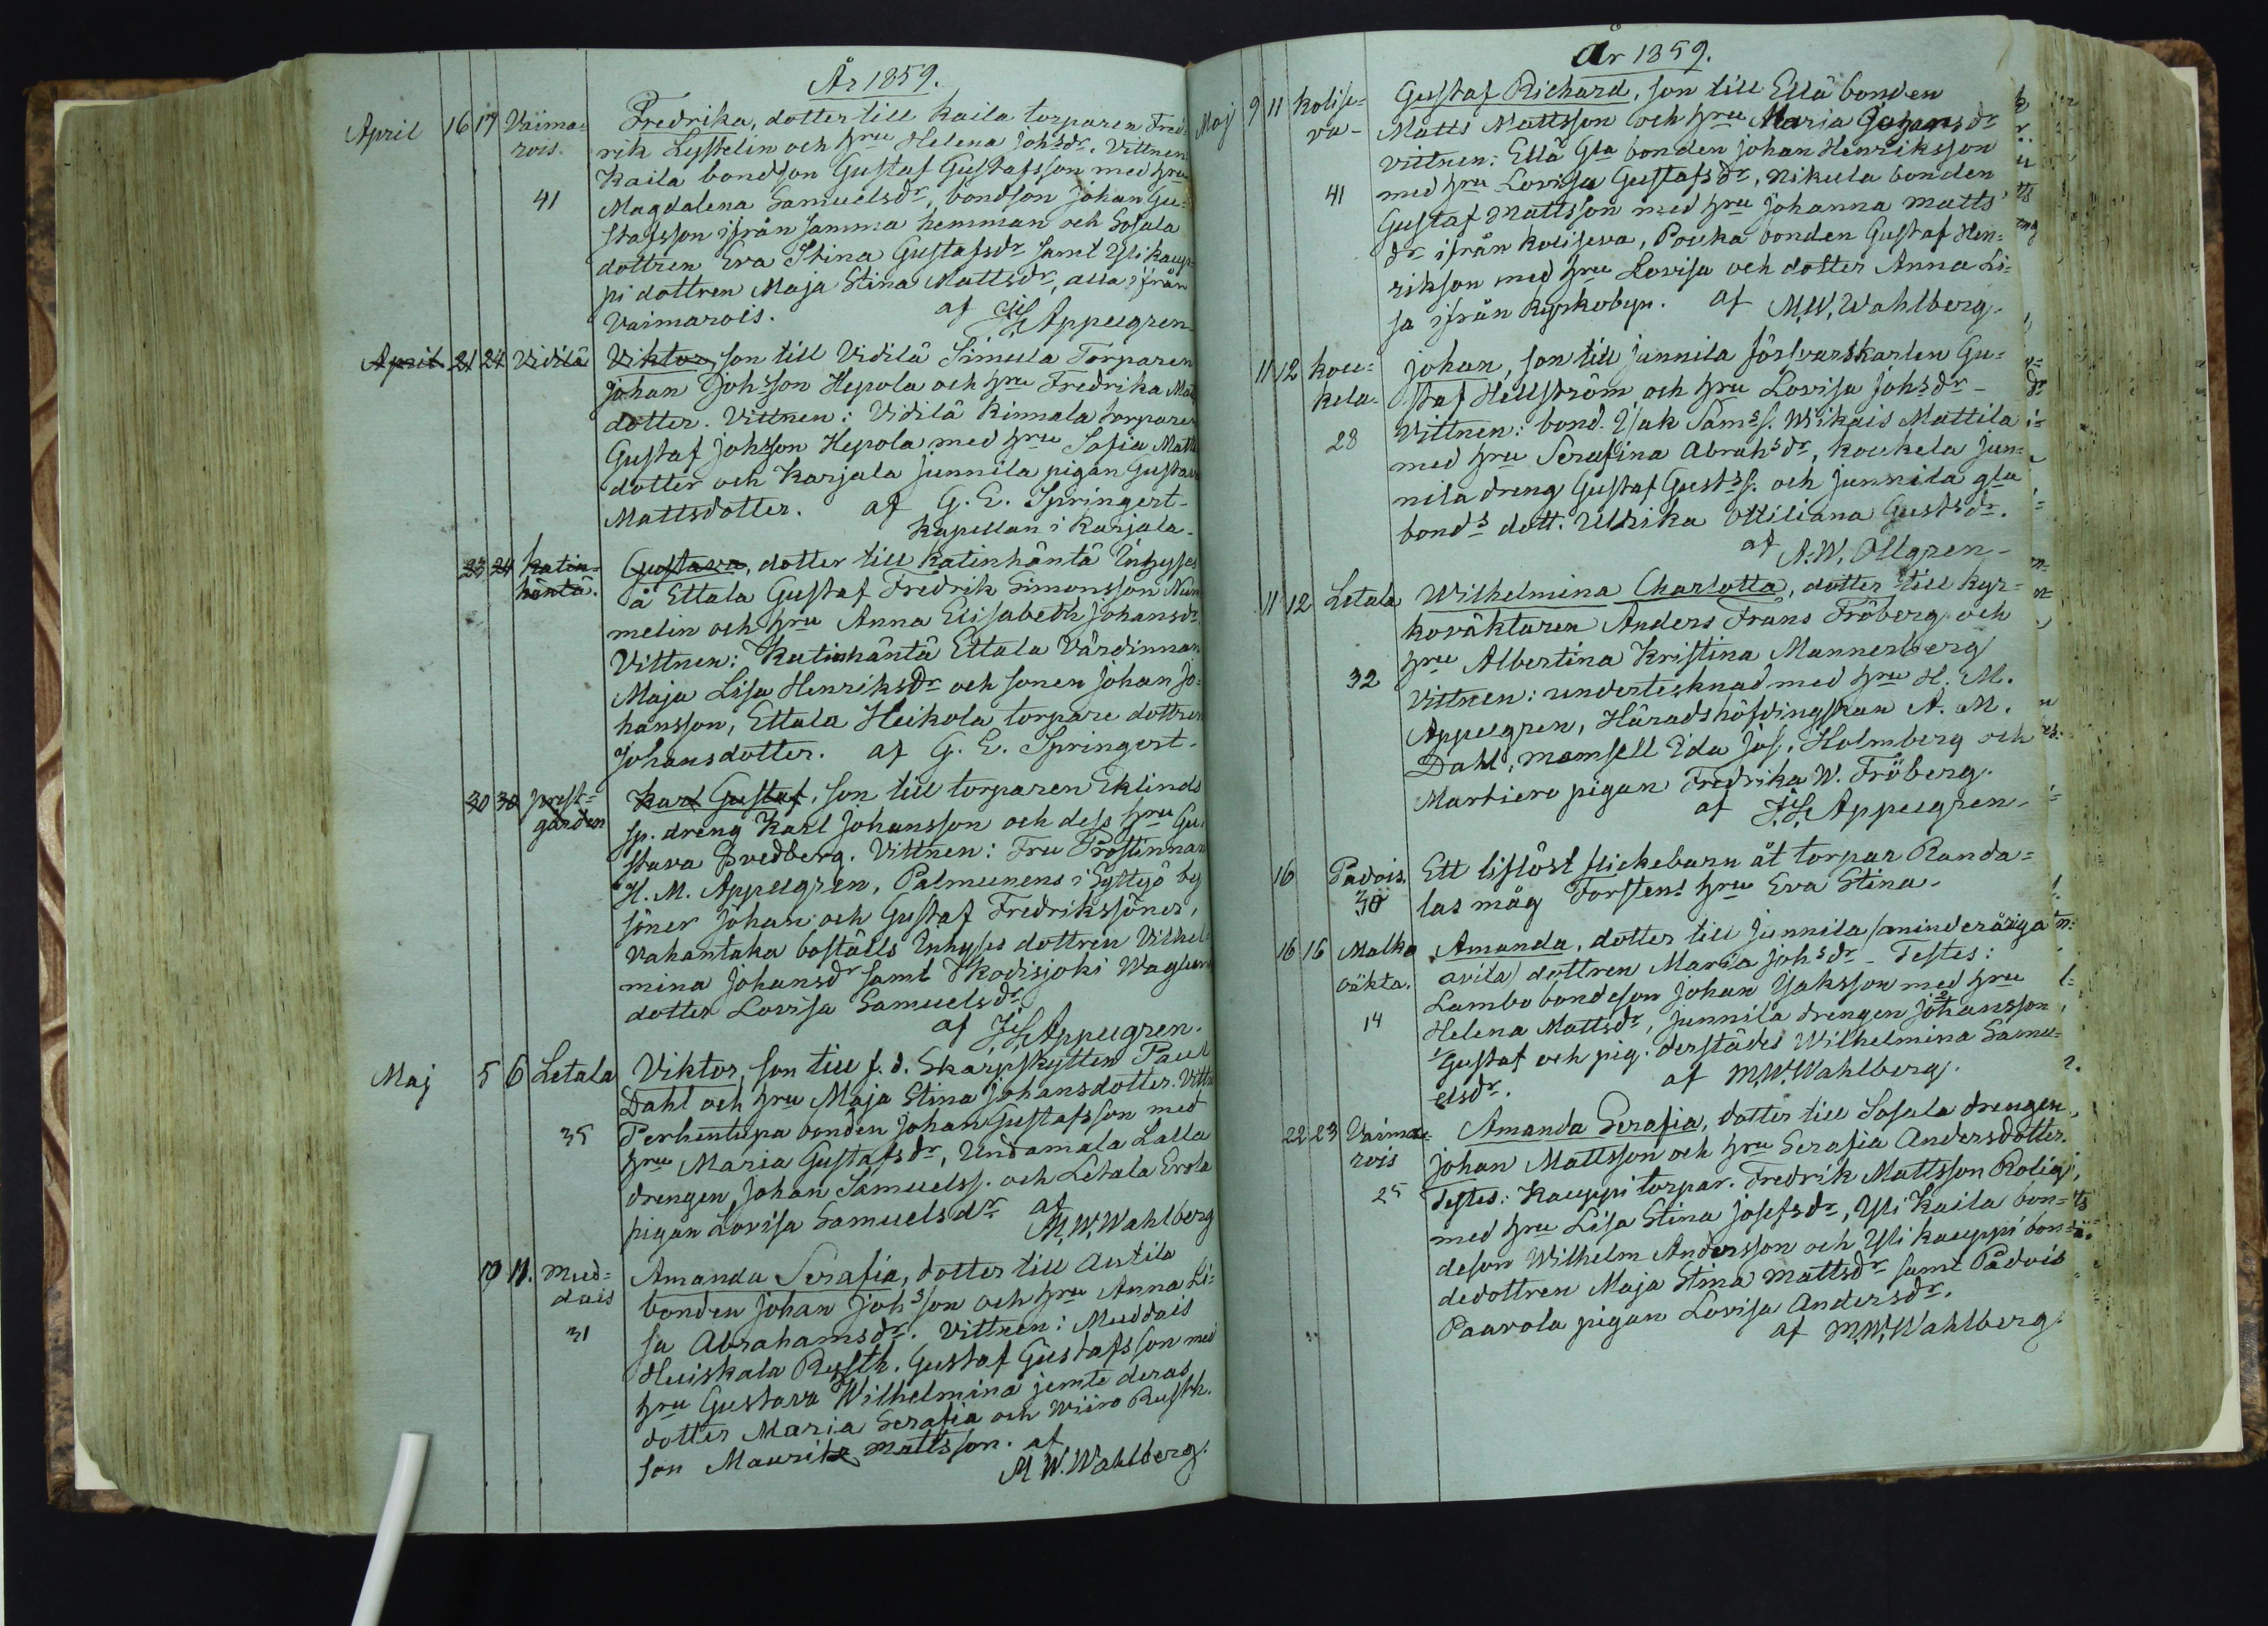 År 1859.
April 16 17 Väima= Fredrika, dotter till Kaila torparen Fred=
rois. rik Lystelin och hru Helena Johsdr. Vittnen
Kaila bondson Gustaf Gustafsson med hru
41 Magdalena Samuelsdr, bondson Johan Gu=
stafsson ifrån samma hemman och Sosala
dottren Eva Stina Gustafsdr samt Yli kaup=
pi dottren Maja Stina Mattsdr, alla ifrån
Vaimarois. af Appelgren
April 21 24 Vidilä Viktor, son till Vidilä Simula Torparen
Johan Johsson Hepola och hru Fredrika Mat
dotter. Vittnen: Vidilä Kinnala torparen
Gustaf Johsson Hepola med hru Sofia Matts
dotter och Karjala Junnila pigan Gustava
Mattsdotter. af G. E. Springert-
Kapellan i Karjala-
23 24 Katin= Gustava, dotter till Katinhäntä Inhyses
häntä. å Ettala Gustaf Fredrik Simonsson Num
melin och hru Anna Elisabeth Johansdr.
Vittnen: Katinhäntä Ettala Värdinnan
Maja Lisa Henriksdr och sonen Johan Jo=
hansson, Ettala Heikola torpare dottren
Johansdotter. af G. E. Springert-
30 30 Prest= Karl Gustaf, son till torparen Eklinds
gården sp. dreng Karl Johansson och dess hru Gu=
stava Svedberg. Vittnen: Fru Prostinnan
H. M. Appelgren, Palmunens i Gyltyö by
söner Johan och Gustaf Fredrikssöner,
Vahantaka boställs Inhyses dottren Vilhel=
mina Johansdr samt Kodisjoki
dotter Lovisa Samuelsdr.
af Appelgren.
Maj 5 6 Letala Viktor, son till f. d. Skarpskytten Paul
Dahl och hru Maja Stina Johansdotter. Vittn
35 Perhentupa bonden Johan Gustafsson med
hru Maria Gustafsdr, Undamala Lalla
drengen Johan Samuelss. och Letala Erola
pigan Lovisa Samuelsdr af
M. W. Wahlberg
10 11. Mud= Amanda Serafia, dotter till Antila
dais bonden Johan Johsson och hru Anna Li=
31 sa Abrahamsdr. Vittnen: Muddais
Huiskala Rusth. Gustaf Gustafsson med
hru Gustava Wilhelmina jemte deras
dotter Maria Serafia och Wiiro Rusth.
son Maurits Mattsson. af
M. W. Wahlberg.
År 1859.
Maj 9 11 Kolise= Gustaf Richard, son till Ellä bonden
va- Matts Mattsson och hru Maria Johansdr
Vittnen: Ellä Gla bonden Johan Henriksson
41 med hru Lovisa Gustafsdr, Nikula bonden
Gustaf Mattsson med hru Johanna Matts
dr ifrån Koliseva, Pouka bonden Gustaf Hen=
rikson med hru Lovisa och dotter Anna Li=
sa ifrån Kyrkobyn. af M. W. Wahlberg.
11 12 Kou= Johan, son till Junnila försvarskarlen Gu=
kela- staf Hellström och hru Lovisa Johsdr-
28 Vittnen: bond. Isak Sams s. Wikais Mattila
med hru Serafina Abrahsdr, Koukela Jun=
nila dreng Gustaf Gusts s. och Junnila gla
bonds dott. Ulrika Ottiliana Gustsdr.
af A. W. Ollgren-
11 12 Letala Wilhelmina Charlotta, dotter till Kyr=
koväktaren Anders Frans Fröberg och
hru Albertina Kristina Mannerberg
32 Vittnen: undertecknad med hru H. M.
Appelgren, Häradshöfdingskan A. M.
Dahl, mamsell Ida Jos. Holmberg och
Martiero pigan Fredrika W. Fröberg.
af Appelgren-
16 Padois. Ett liflöst flickebarn åt torpar Randa=
30 las måg Forstens hru Eva Stina-
16 16 Malko Amanda, dotter till Junnila (minderåriga
väkta. avita) dottren Maria Johsdr- Testes:
Lambo bondeson Johan Isaksson med hru
14 Helena Mattsdr, Junnila drengen Johansson
Gustaf och pig. derstädes Wilhelmina Samu=
elsdr. af M. W. Wahlberg.
22 23 Vaima= Amanda Serafia, dotter till Sosala drengen
rois Johan Mattsson och hru Serafia Andersdotter.
25 Testes: Kauppi torpar. Fredrik Mattsson Rolig
med hru Lisa Stina Josefsdr, Yli Kaila bon=
deson Wilhelm Andersson och Yli kauppi bon=
dedottren Maja Stina Mattsdr samt Padois
Paavola pigan Lovisa Andersdr.
af M. W. Wahlberg.